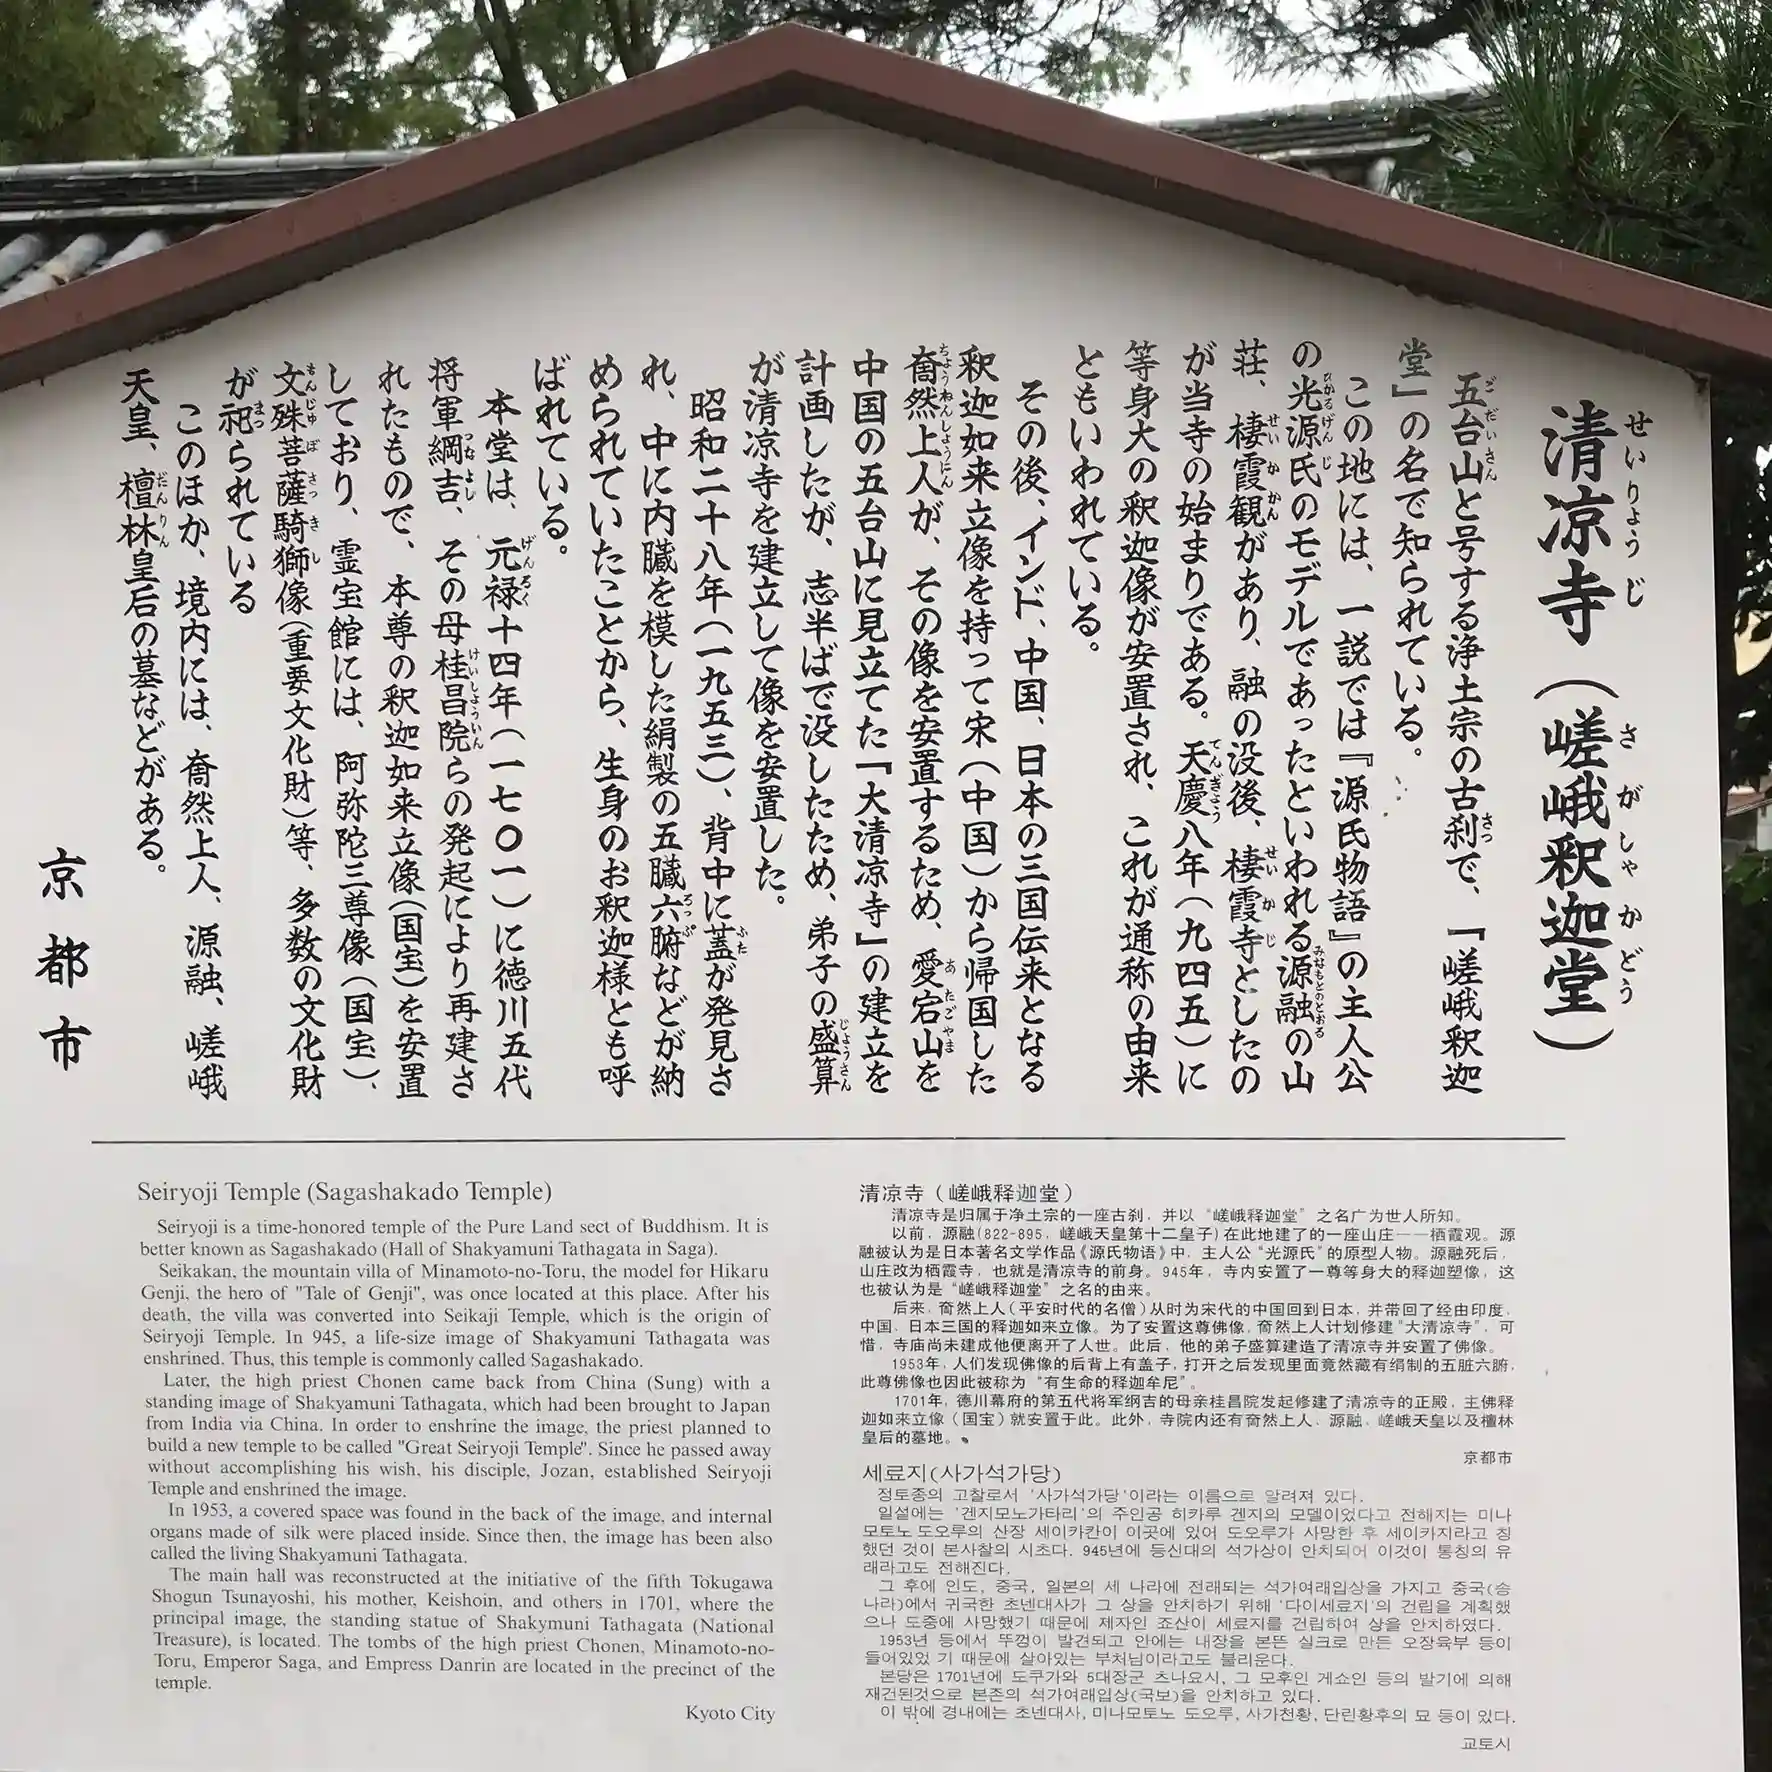 清凉寺（嵯峨釈迦堂）
せいりょうじ さがしゃかどう
五台山と号する浄土宗の古刹で、「嵯峨釈迦
堂」の名で知られている。
この地には、一説では『源氏物語』の主人公
の光源氏のモデルであったといわれる源融の山
荘、棲霞観があり、融の没後、棲霞寺としたの
が当寺の始まりである。天慶八年（九四五）に
等身大の釈迦像が安置され、これが通称の由来
ともいわれている。
その後、インド、中国、日本の三国伝来となる
釈迦如来立像を持って宋（中国）から帰国した
奝然上人が、その像を安置するため、愛宕山を
中国の五台山に見立てた「大清凉寺」の建立を
計画したが、志半ばで没したため、弟子の盛算
が清凉寺を建立して像を安置した。
昭和二十八年（一九五三）、背中に蓋が発見さ
れ、中に内臓を模した絹製の五臓六腑などが納
められていたことから、生身のお釈迦様とも呼
ばれている。
本堂は、元禄十四年（一七〇一）に徳川五代
将軍綱吉、その母桂昌院らの発起により再建さ
れたもので、本尊の釈迦如来立像（国宝）を安置
しており、霊宝館には、阿弥陀三尊像（国宝）、
文殊菩薩騎獅像（重要文化財）等、多数の文化財
が祀られている
このほか、境内には、奝然上人、源融、嵯峨
天皇、檀林皇后の墓などがある。
京都市
Seiryoji Temple (Sagashakado Temple)
Seiryoji is a time-honored temple of the Pure Land sect of Buddhism. It is
better known as Sagashakado (Hall of Shakyamuni Tathagata in Saga).
Seikakan, the mountain villa of Minamoto-no-Toru, the model for Hikaru
Genji, the hero of "Tale of Genji", was once located at this place. After his
death, the villa was converted into Seikaji Temple, which is the origin of
Seiryoji Temple. In 945, a life-size image of Shakyamuni Tathagata was
enshrined. Thus, this temple is commonly called Sagashakado.
Later, the high priest Chonen came back from China (Sung) with a
standing image of Shakyamuni Tathagata, which had been brought to Japan
from India via China. In order to enshrine the image, the priest planned to
build a new temple to be called "Great Seiryoji Temple". Since he passed away
without accomplishing his wish, his disciple, Jozan, established Seiryoji
Temple and enshrined the image.
In 1953, a covered space was found in the back of the image, and internal
organs made of silk were placed inside. Since then, the image has been also
called the living Shakyamuni Tathagata.
The main hall was reconstructed at the initiative of the fifth Tokugawa
Shogun Tsunayoshi, his mother, Keishoin, and others in 1701, where the
principal image, the standing statue of Shakymuni Tathagata (National
Treasure), is located. The tombs of the high priest Chonen, Minamoto-no-
Toru, Emperor Saga, and Empress Danrin are located in the precinct of the
temple.
Kyoto City
清凉寺（嵯峨释迦堂）
清凉寺是归属于净土宗的一座古刹，并以“嵯峨释迦堂”之名广为世人所知。
以前，源融(822-895，嵯峨天皇第十二皇子)在此地建了的一座山庄——栖霞观。源
融被认为是日本著名文学作品《源氏物语》中，主人公“光源氏”的原型人物。源融死后，
山庄改为栖霞寺，也就是清凉寺的前身。945年，寺内安置了一尊等身大的释迦塑像，这
也被认为是“嵯峨释迦堂”之名的由来。
后来，奝然上人(平安时代的名僧)从时为宋代的中国回到日本，并带回了经由印度，
中国，日本三国的释迦如来立像。为了安置这尊佛像，奝然上人计划修建“大清凉寺”，可
惜，寺庙尚未建成他便离开了人世。此后，他的弟子盛算建造了清凉寺并安置了佛像。
1953年，人们发现佛像的后背上有盖子，打开之后发现里面竟然藏有绢制的五脏六腑，
此尊佛像也因此被称为“有生命的释迦牟尼”。
1701年，德川幕府的第五代将军纲吉的母亲桂昌院发起修建了清凉寺的正殿，主佛释
迦如来立像（国宝）就安置于此。此外，寺院内还有奝然上人，源融，嵯峨天皇以及檀林
皇后的墓地。
京都市
세료지(사가석가당)
정토종의 고찰로서 '사가석가당'이라는 이름으로 알려져 있다.
일설에는 '겐지모노가타리'의 주인공 히카루 겐지의 모델이었다고 전해지는 미나
모토노 도오루의 산장 세이카칸이 이곳에 있어 도오루가 사망한 후 세이카지라고 칭
했던 것이 본사찰의 시초다. 945년에 등신대의 석가상이 안치되어 이것이 통칭의 유
래라고도 전해진다.
그 후에 인도, 중국, 일본의 세 나라에 전래되는 석가여래입상을 가지고 중국(송
나라)에서 귀국한 초넨대사가 그 상을 안치하기 위해 '다이세료지'의 건립을 계획했
으나 도중에 사망했기 때문에 제자인 죠산이 세료지를 건립하여 상을 안치하였다.
1953년 등에서 뚜껑이 발견되고 안에는 내장을 본뜬 실크로 만든 오장육부 등이
들어있었 기 때문에 살아있는 부처님이라고도 불리운다.
본당은 1701년에 도쿠가와 5대장군 츠나요시, 그 모후인 게쇼인 등의 발기에 의해
재건된것으로 본존의 석가여래입상(국보)을 안치하고 있다.
이 밖에 경내에는 초넨대사, 미나모토노 도오루, 사가천황, 단린황후의 묘 등이 있다.
교토시